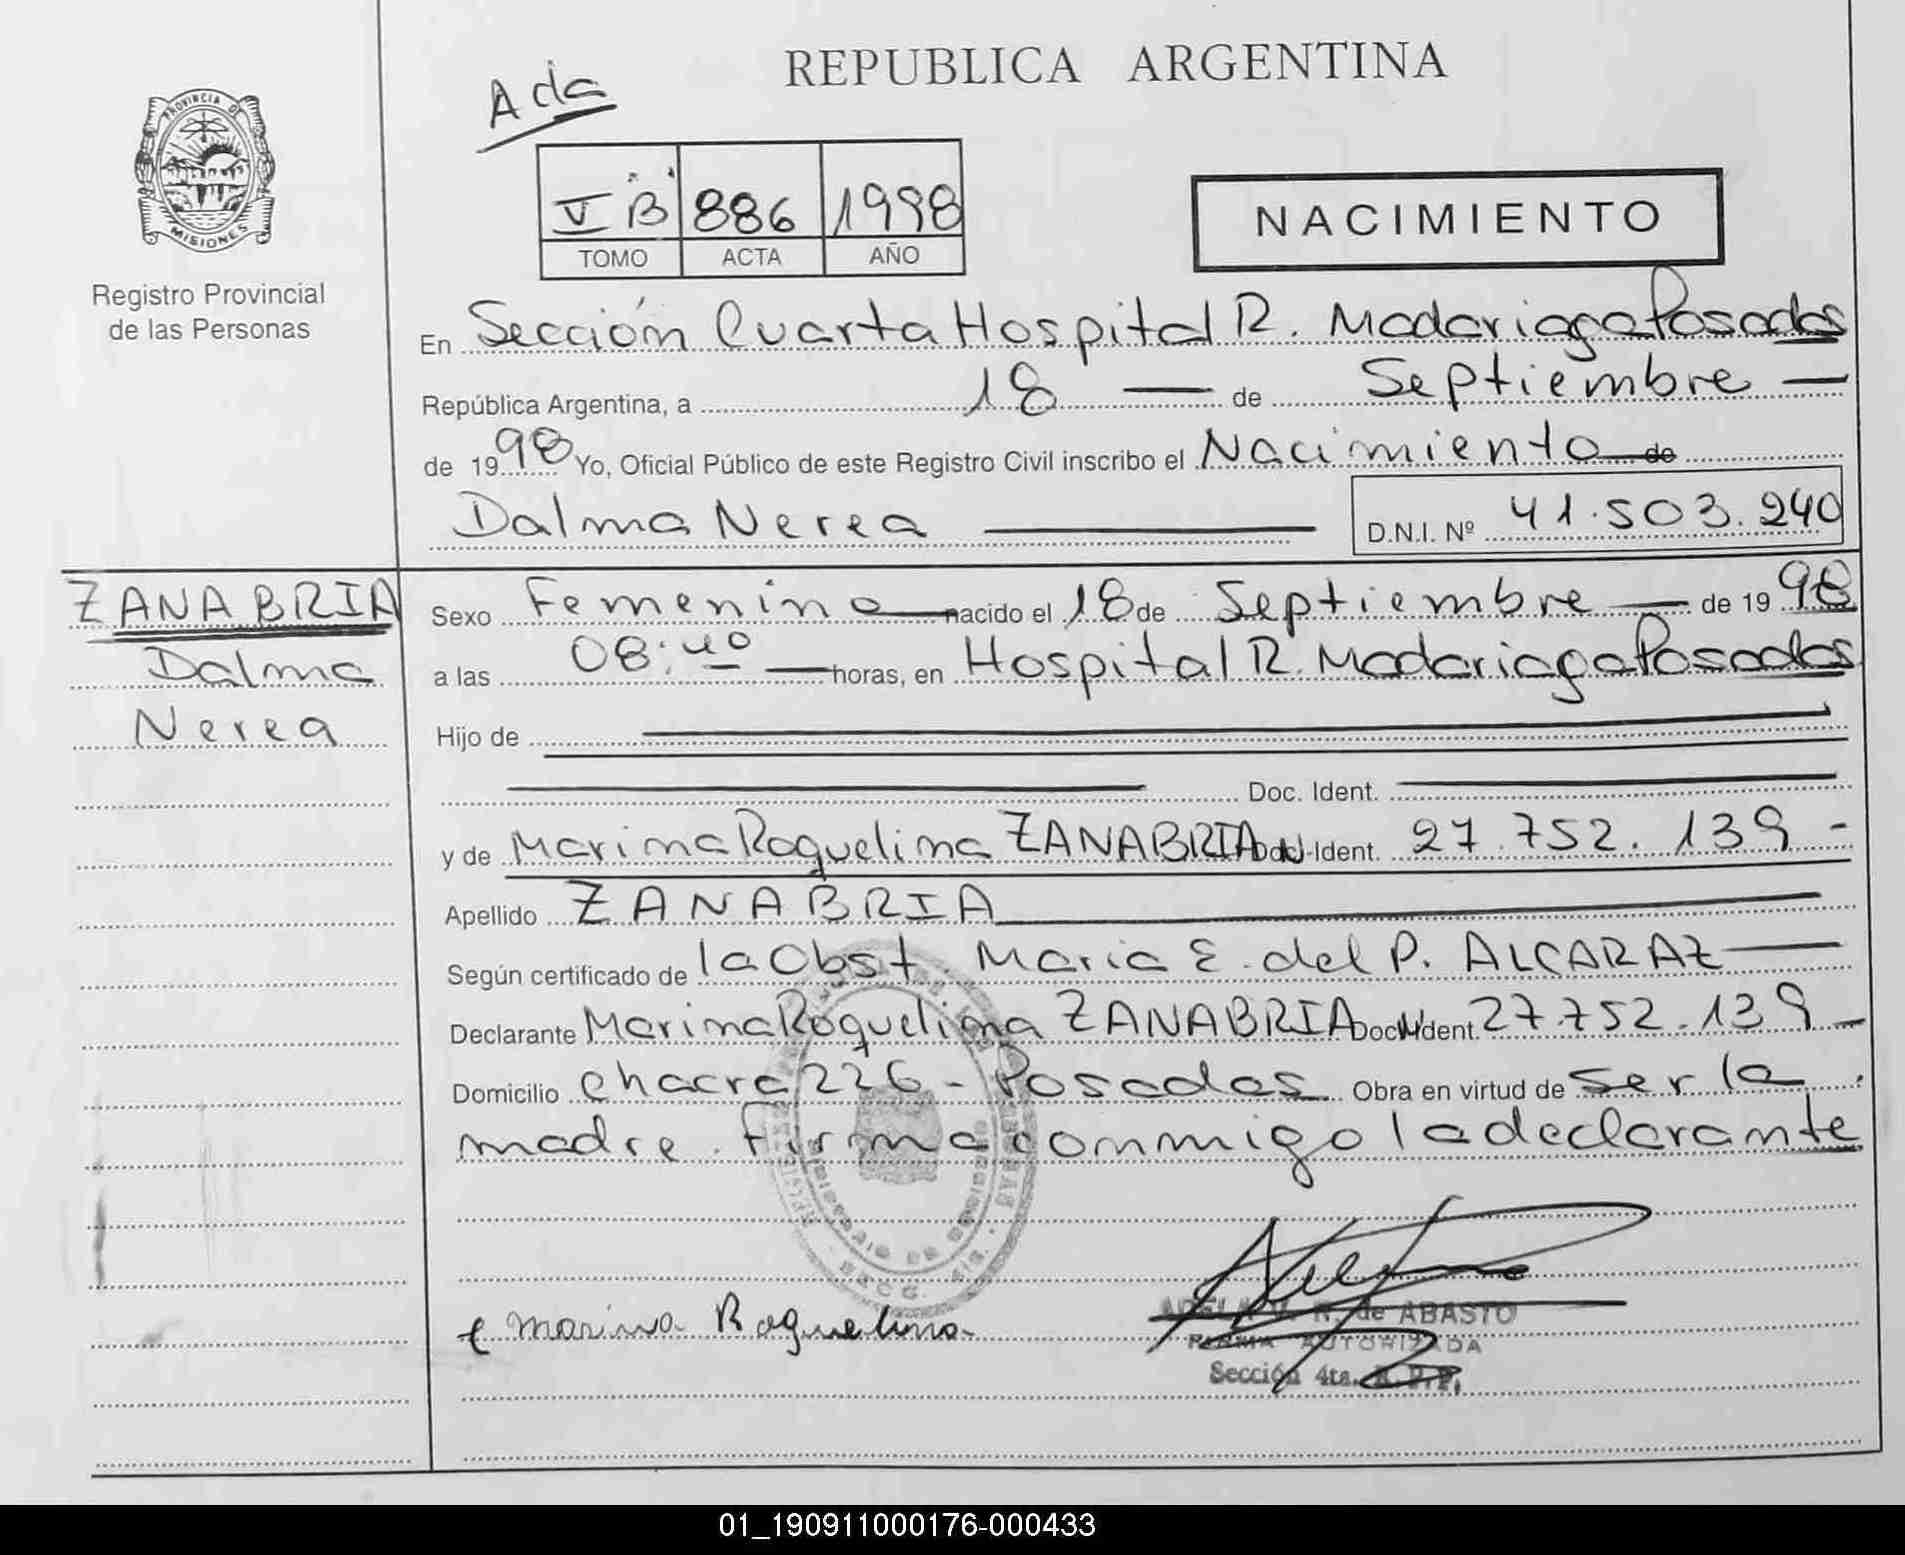 REPUBLICA ARGENTINA
Ada
PROVINCIA DE
MISIONES
Registro Provincial
de las Personas
V "B" 886 1998
TOMO ACTA AÑO
NACIMIENTO
En Sección Cuarta Hospital R. Madariaga Posadas
República Argentina, a 18 — de Septiembre —
de 1998 Yo, Oficial Público de este Registro Civil inscribo el Nacimiento de
Dalma Nerea — D.N.I. Nº 41.503.240
ZANABRIA
Dalma
Nerea
Sexo Femenino nacido el 18 de Septiembre — de 1998
a las 08:40 — horas, en Hospital R. Madariaga Posadas
Hijo de
Doc. Ident.
y de Marina Roquelina ZANABRIA Doc. Ident. 27.752.139 -
Apellido ZANABRIA
Según certificado de la Obst. Maria E. del P. ALCARAZ —
Declarante Marina Roquelina ZANABRIA Doc. Ident. 27.752.139 —
Domicilio chacra 226 - Posadas Obra en virtud de ser la
madre. Firma conmigo la declarante
Marina Roquelina
R. de ABASTO
FIRMA AUTORIZADA
Sección 4ta. R. P. P.
01_190911000176-000433